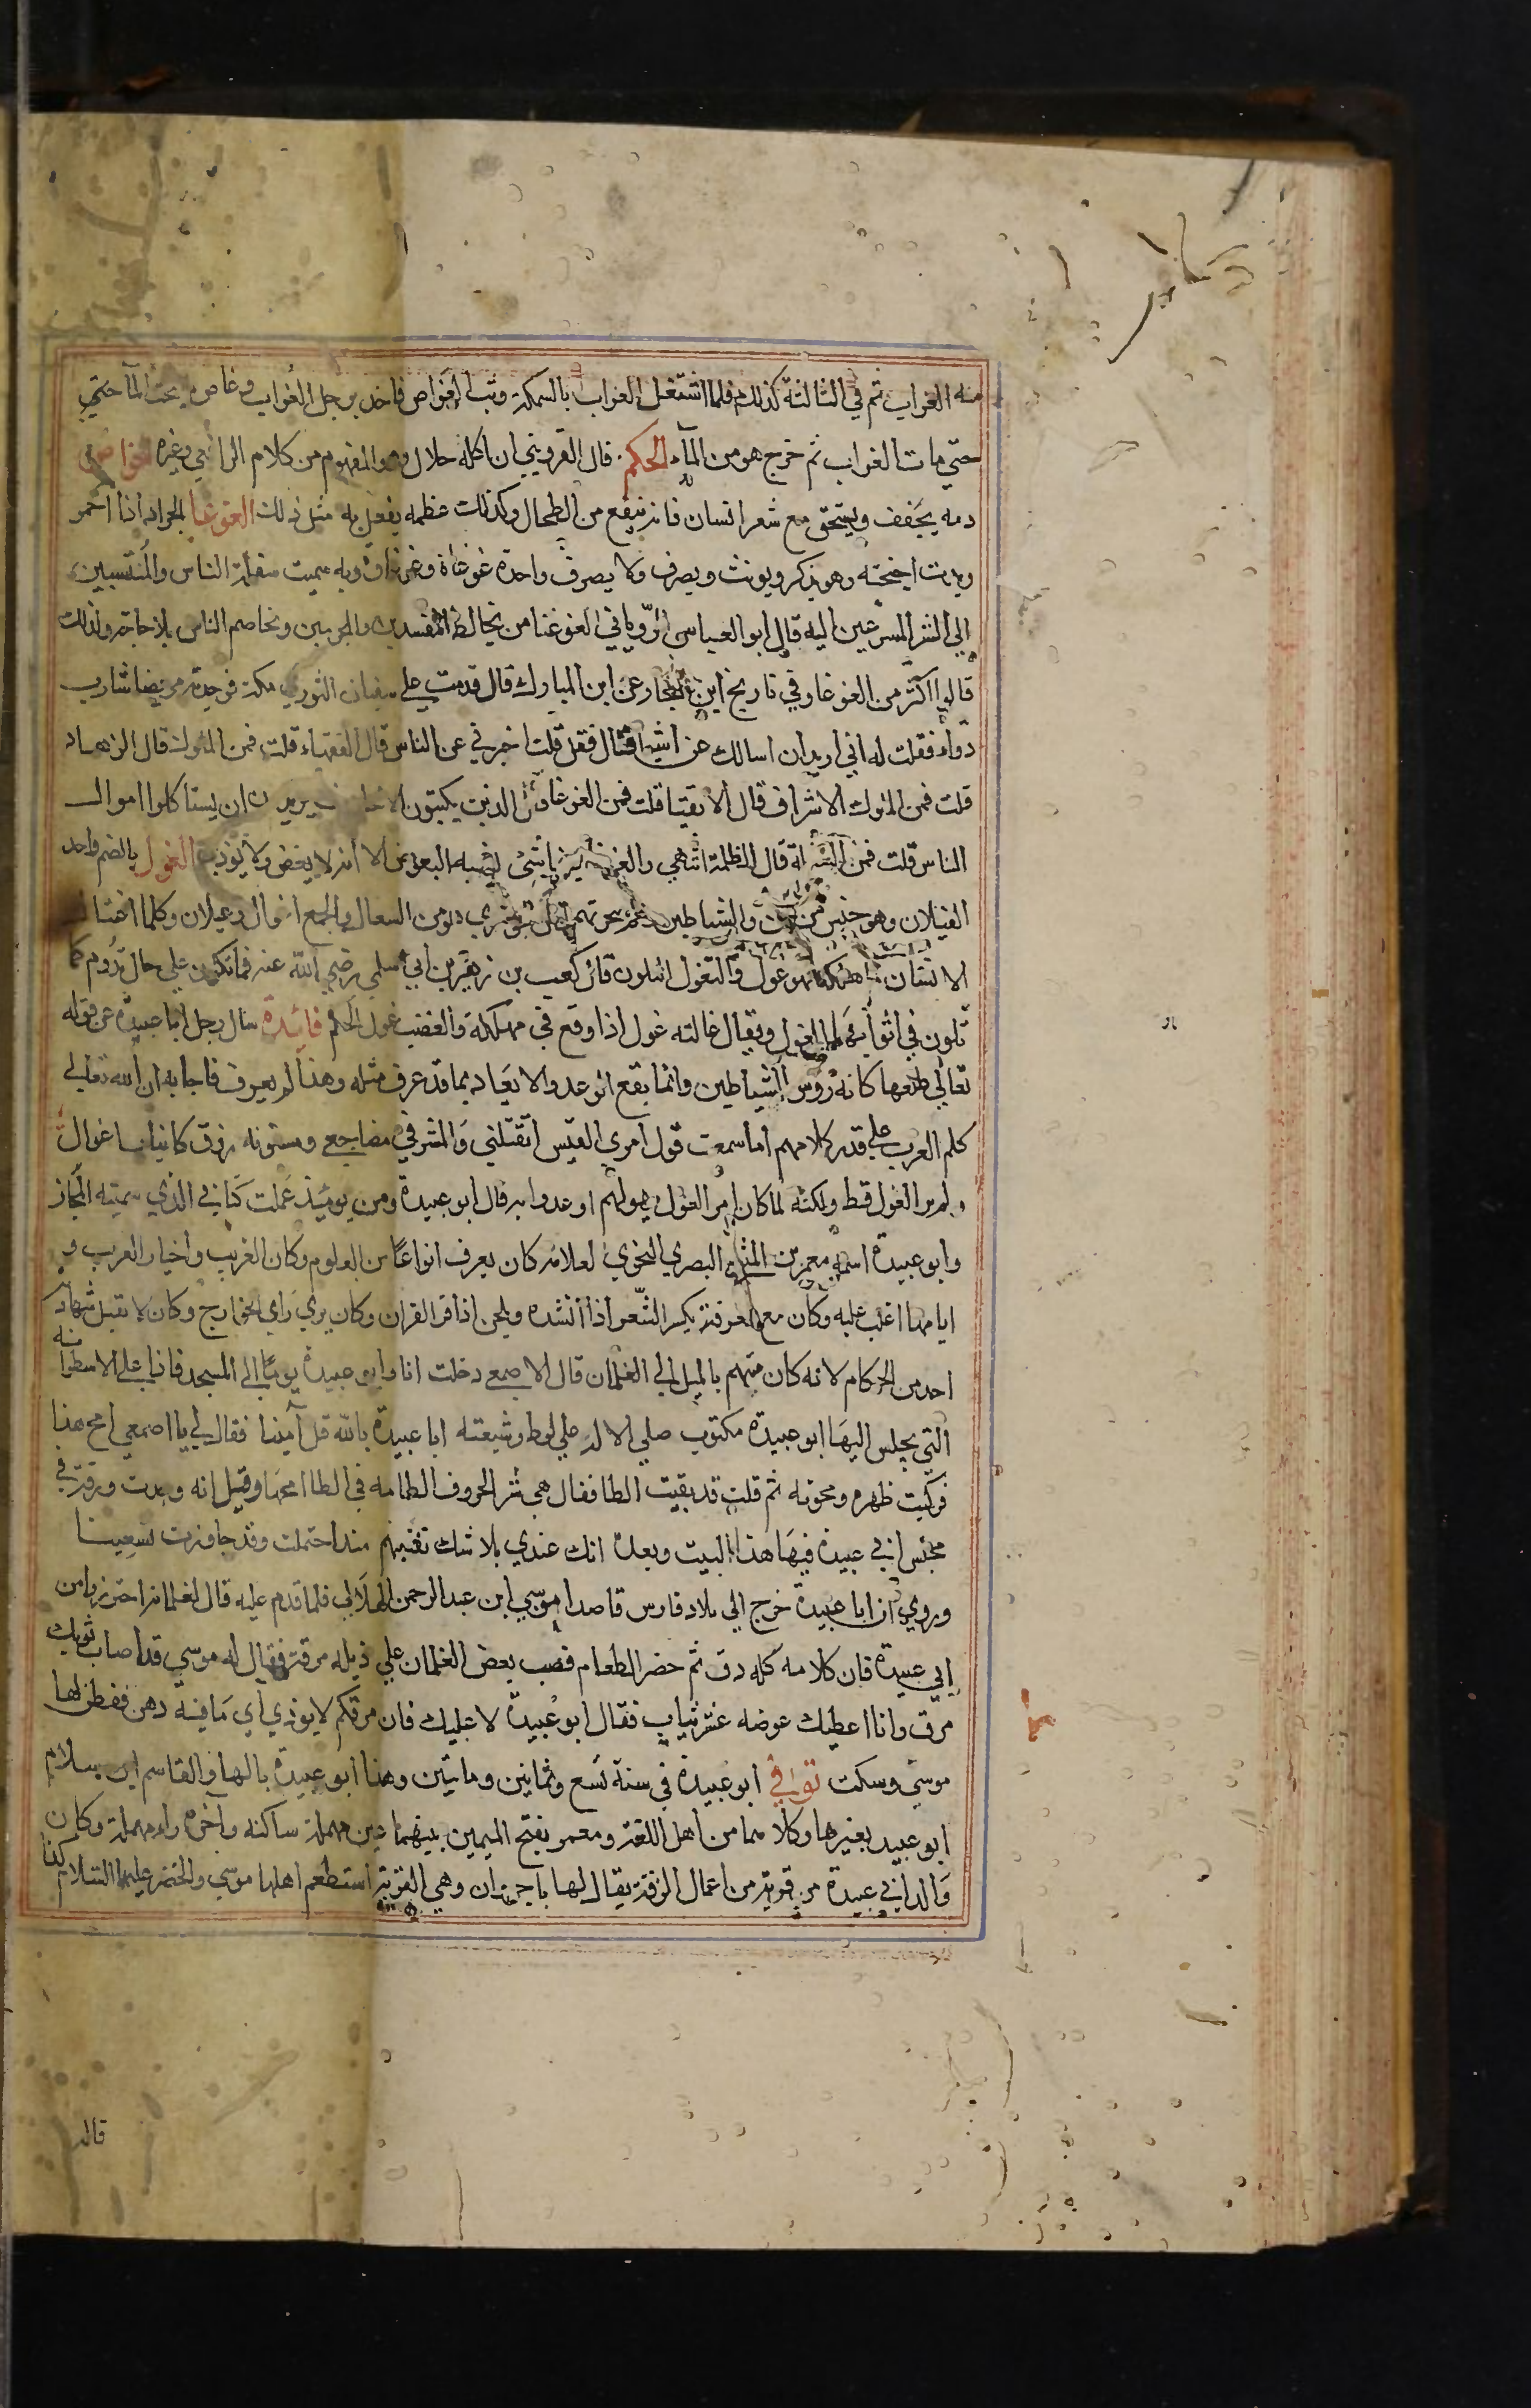 منه الغراب ثم في الثالثة كذلك فلما اشتغل الغراب بالسمكة وثب الغواص فاخذ برجل الغراب وغاص به تحت الماء حتي
حتي مات الغراب ثم خرج هو من الماء الحكم قال القزويني ان اكله حلال وهو المفهوم من كلام الرافعي وغيره الخواص
دمه يجفف ويسحق مع شعر انسان فانه ينفع من الطحال وكذلك عظمه يفعل به مثل ذلك الغوغا الجراد اذا احمر
وبدت اجنحته وهو يذكر ويونث ويصرف ولا يصرف واحدة غوغاة وغوغاوة وبه سميت سفلة الناس والمنتسبين
الي الشر المسرعين اليه قال ابو العباس الروياني الغوغا من يخالط المفسدين والمجرمين ويخاصم الناس بلا حاجة ولذلك
قالوا اكثر من الغوغا وفي تاريخ ابن النجار عن ابن المبارك قال قدمت علي سفيان الثوري مكة فوجدته مريضا شارب
دواء فقلت له اني اريد ان اسالك عن اشيا فقال فقل قلت اخبرني عن الناس قال الفقهاء قلت فمن الملوك قال الزهاد
قلت فمن الملوك الاشراف قال الاتقيا قلت فمن الغوغا قال الذين يكتبون يريدون ان يستاكلوا اموال
الناس قلت فمن السفلة قال الظلمة انتهي والغوغا شي يشبه البعوض الا انه لا يعض ولا يوذي الغول بالضم واحد
الغيلان وهو جنس من الجن والشياطين وهم سحرتهم قال الجوهري هو من السعالي والجمع اغوال وغيلان وكلما اغتال
الانسان فاهلكه فهو غول والتغول التلون قال كعب بن زهير بن ابي سلمي رضي الله عنه فما تكون علي حال تدوم كما
تلون في اثوابها الغول ويقال غالته غول اذا وقع في مهلكة والغضب غول الحلم فائدة سال رجل ابا عبيدة عن قوله
تعالي طلعها كانه رؤس الشياطين وانما يقع الوعد والايعاد بما قد عرف مثله وهذا لم يعرف فاجابه ان الله تعالي
كلم العرب علي قدر كلامهم اما سمعت قول امري القيس اتقتلني والمشرفي مضاجعي ومسنونه زرق كانياب اغوال
ولم ير الغول قط ولكنه لما كان امر الغول يهولهم اوعدوا به قال ابو عبيدة ومن يومئذ عملت كتابي الذي سميته المجاز
وابو عبيدة اسمه معمر بن المثني البصري النحوي العلامه كان يعرف انواعا من العلوم وكان الغريب واخبار العرب و
ايامها اغلب عليه وكان مع معرفته يكسر الشعر اذا انشده ويلحن اذا قرا القران وكان يري راي الخوارج وكان لا تقبل شهادته
احد من الحكام لانه كان متهم بالميل الي الغلمان قال الاصمعي دخلت انا وابو عبيدة يوما الي المسجد فاذا علي الاسطوانة
التي يجلس اليها ابو عبيدة مكتوب صلي الاله علي لوط وشيعته ابا عبيدة بالله قل آمينا فقال لي يا اصمعي امح هذا
فركبت ظهره ومحوته ثم قلت قد بقيت الطا فقال هي شر الحروف الطامه في الطا امحها وقيل انه وجدت ورقة في
مجلس ابي عبيدة فيها هذا البيت وبعده انك عندي بلا شك تقنتهم منذ احتملت وقد جاوزت تسعينا
وروي ان ابا عبيدة خرج الي بلاد فارس قاصدا موسي ابن عبد الرحمن الهلالي فلما قدم عليه قال لغلمانه احترزوا من
ابي عبيدة فان كلامه كله دق ثم حضر الطعام فصب بعض الغلمان علي ذيله مرقة فقال له موسي قد اصاب ثوبك
مرق وانا اعطيك عوضه عشر ثياب فقال ابو عبيدة لا عليك فان مرقكم لا يوذي اي ما فيه دهن ففطن لها
موسي وسكت توفي ابو عبيدة في سنة تسع وثمانين ومايتين وهذا ابو عبيدة بالها والقاسم ابن سلام
ابو عبيد بغيرها وكلاهما من اهل اللغة ومعمر بفتح الميمين بينهما عين مهملة ساكنه وآخره راء مهملة وكان
والد ابي عبيدة من قرية من اعمال الرقة يقال لها باجروان وهي القرية استطعم اهلها موسي والخضر عليهما السلام كذا
قاله